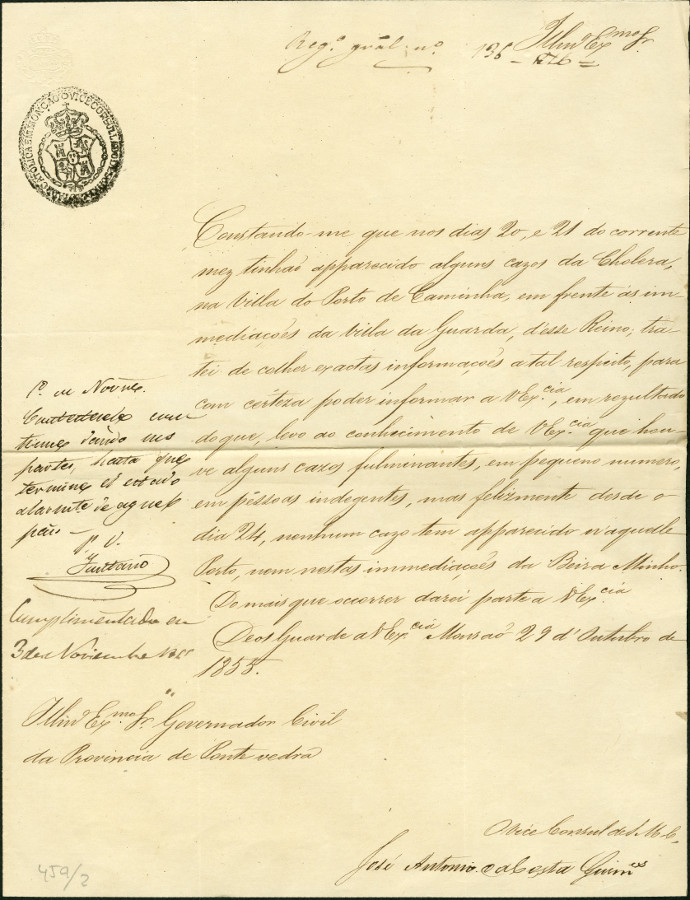 Reg.º gral. nº 136
Illmº Exmo Sr.
Constando-me que nos dias 20, e 21 do corrente
mez tinhaõ apparecido alguns cazos da Cholera,
na Villa do Porto de Caminha, em frente ás im
mediações da Villa da Guarda, d'esse Reino; tra-
tei de colher exactas informações a tal respeito, para
com certeza poder informar a VExcia, em rezultado
do que, levo ao conhecimento de VExcia que hou-
ve alguns cazos fulminantes, em pequeno numero,
em pêssoas indegentes, mas felizmente desde o
dia 24, nenhum cazo tem apparecido n'aquelle
Porto, nem nestas immediações da Beira Minho.
Do mais que ocorrer darei parte a VExcia
Deos Guarde a VExcia Monsaõ 29 d'Outubro de
1855.
1º de Novre.
Contestesele
dando
partes, hasta que
termine el estado
alarmante de aquel
pais—
P. V.
Cumplimentado en
3 de Noviembre 1855
Illmº Exmo Sr. Governador Civil
da Provincia de Ponte vedra
O Vice Consul de S. M. C.
José Antonio da Costa Guimes
459/2